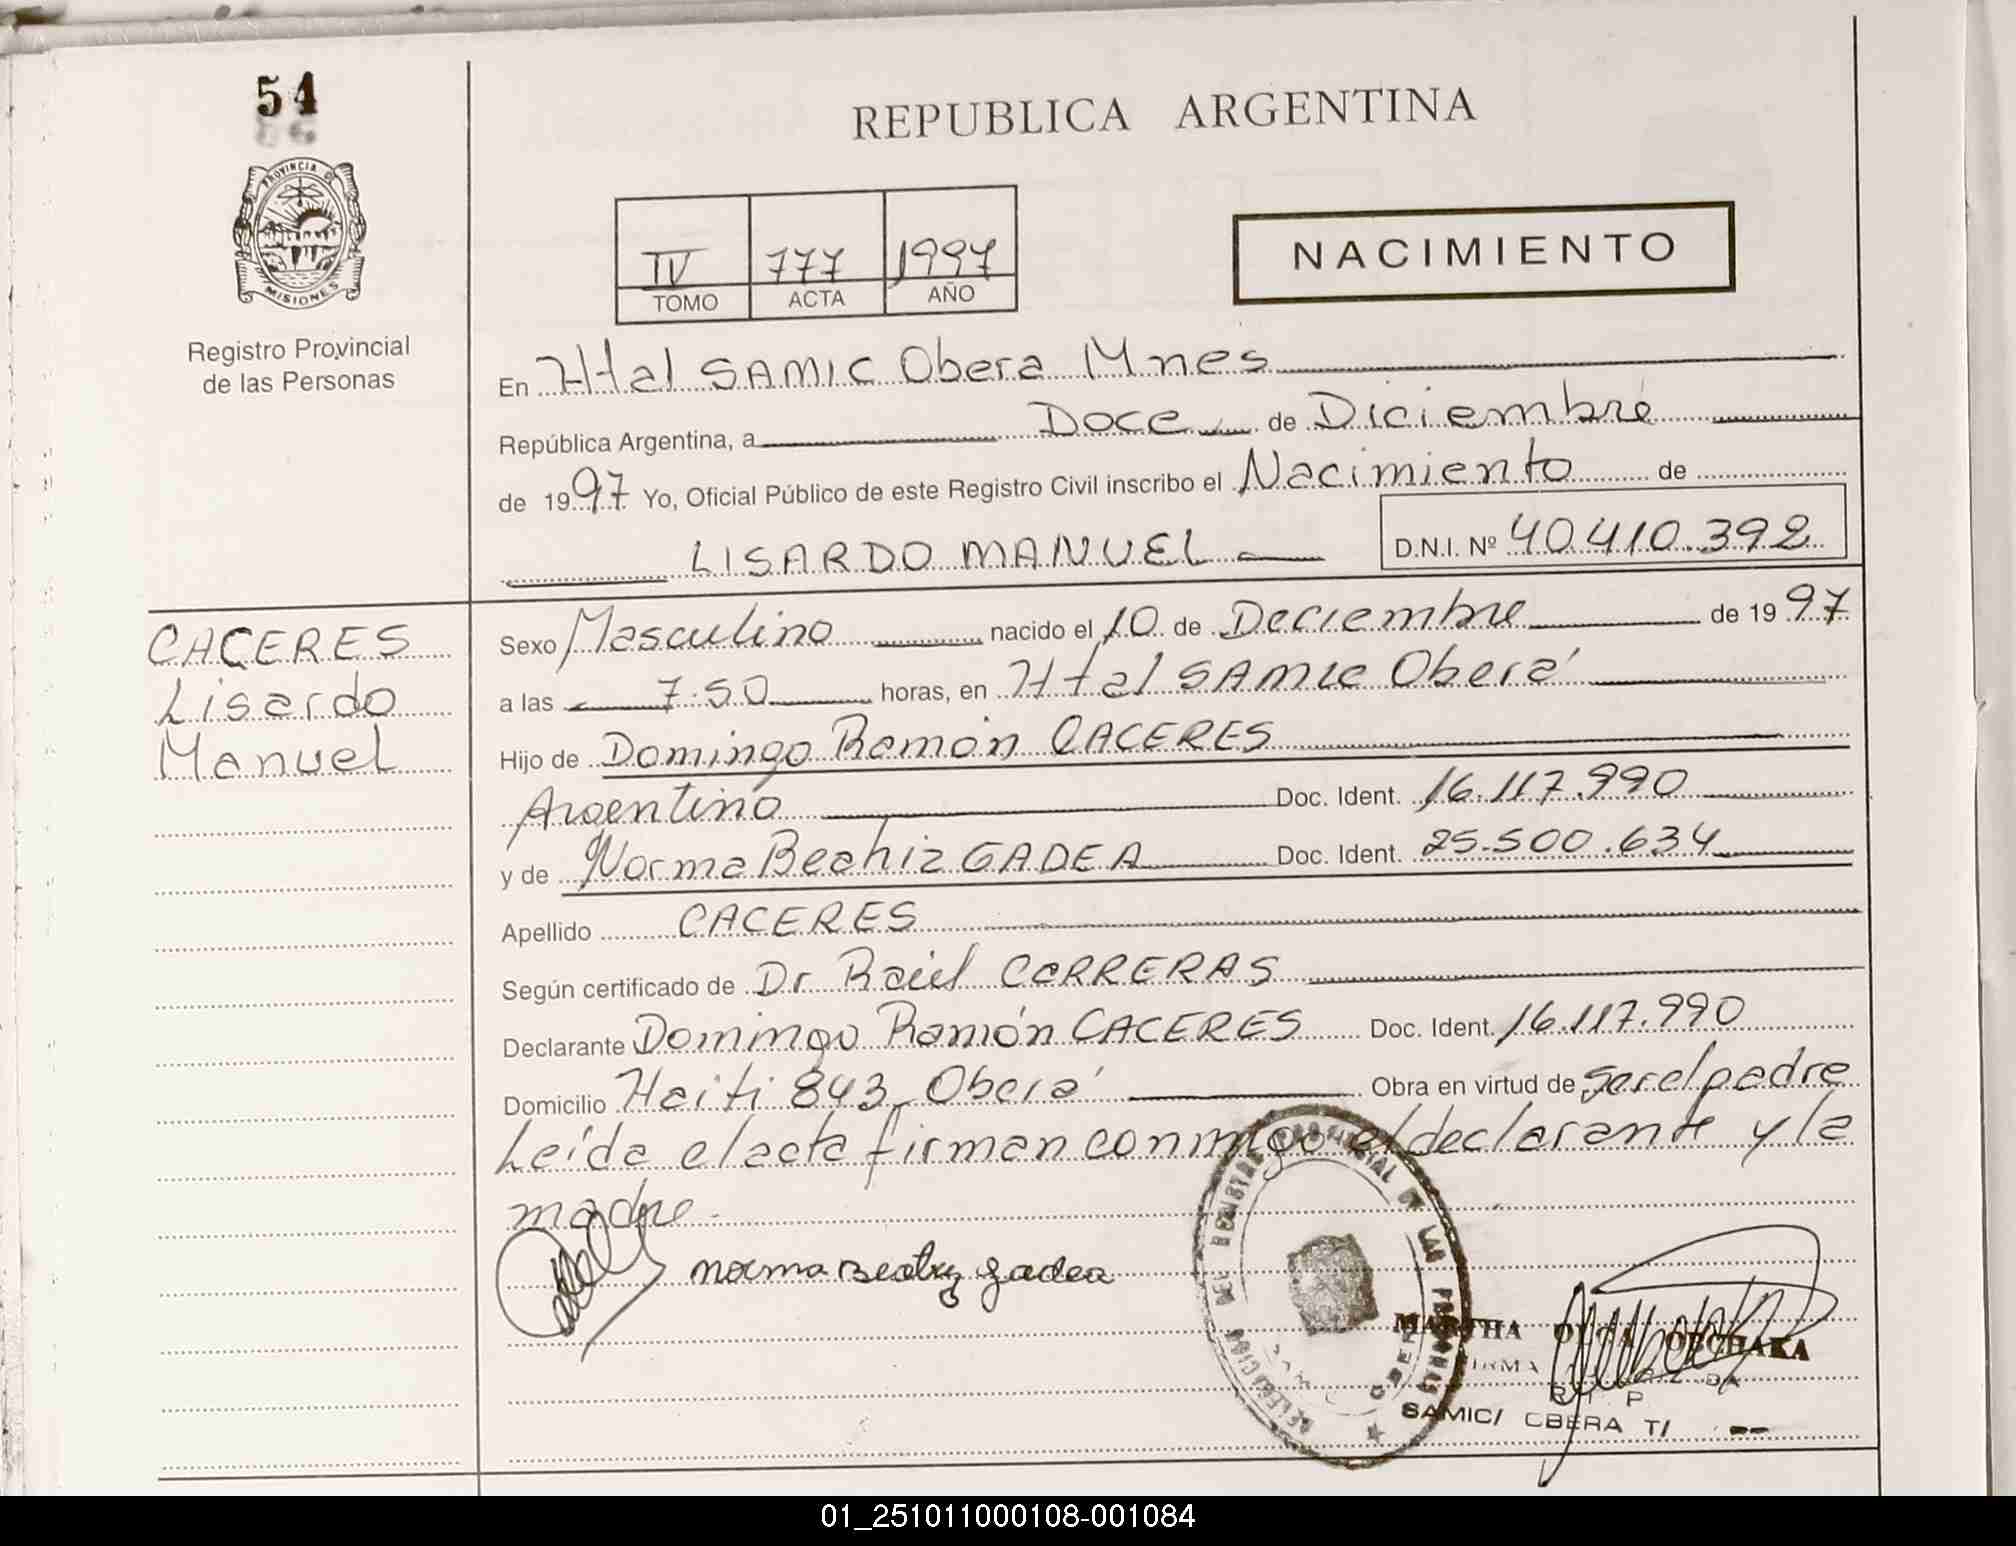 54
PROVINCIA DE
MISIONES
Registro Provincial
de las Personas
REPUBLICA ARGENTINA
IV 777 1997
TOMO ACTA AÑO
NACIMIENTO
En Htal SAMIC Obera Mnes
República Argentina, a Doce de Diciembre
de 1997 Yo, Oficial Público de este Registro Civil inscribo el Nacimiento de
LISARDO MANUEL D.N.I. Nº 40.410.392
CACERES
Lisardo
Manuel
Sexo Masculino nacido el 10 de Deciembre de 1997
a las 7.50 horas, en Htal SAMIC Oberá
Hijo de Domingo Ramón CACERES
Argentino Doc. Ident. 16.117.990
y de Norma Beatriz GADEA Doc. Ident. 25.500.634
Apellido CACERES
Según certificado de Dr Raúl CARRERAS
Declarante Domingo Ramón CACERES Doc. Ident. 16.117.990
Domicilio Haiti 843 Oberá Obra en virtud de ser el padre
Leída el acta firman conmigo el declarante y la
madre.
norma Beatriz gadea
DELEGACION DEL REGISTRO PROVINCIAL DE LAS PERSONAS
MARTHA OLGA
SAMIC/ OBERA T/
01_251011000108-001084